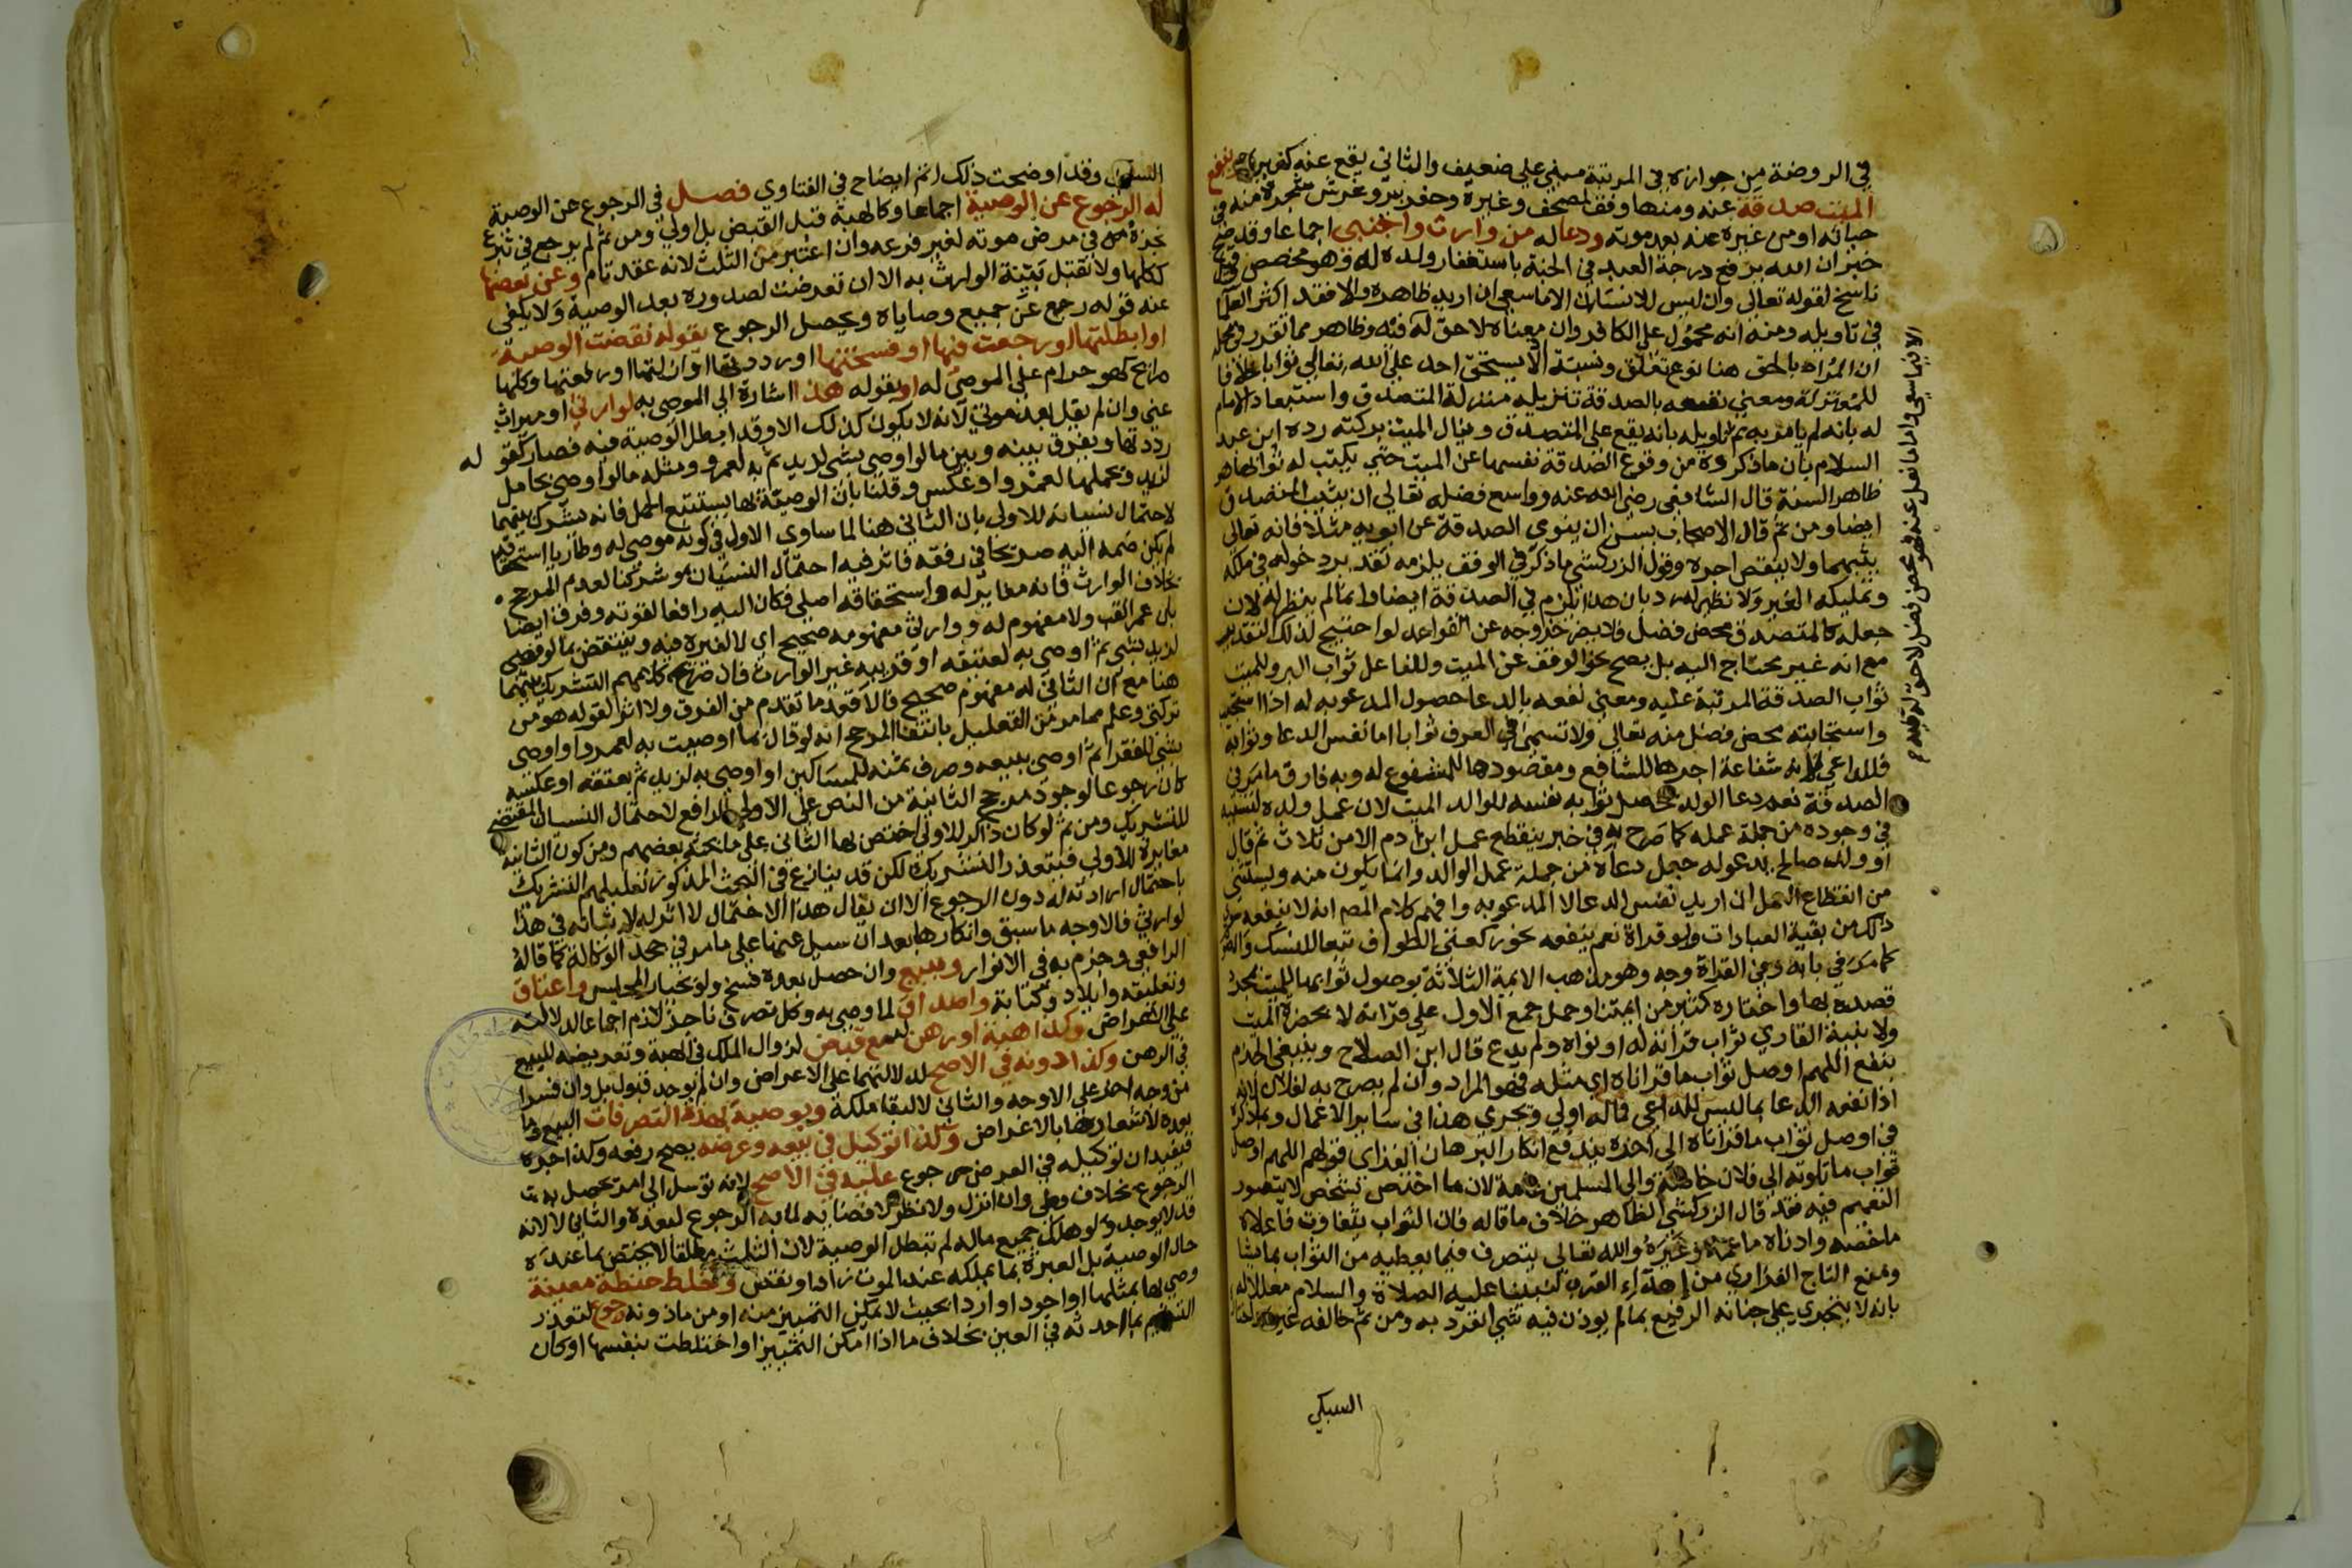 في الروضة من جوازه في المرتبة مبني علي ضعيف والثاني يقع عنه كغيره وينفع
الميت صدقة عنه ومنها وقف المصحف وغيره وحفر بير وغرس شجرة منه في
حياته او من غيره عنه بعد موته ودعا له من وارث واجنبي اجماعا وقد صح
خبر ان الله يرفع درجة العبد في الجنة باستغفار ولده له وهو مخصص وقيل
ناسخ لقوله تعالي وان ليس للانسان الا ما سعي ان اريد ظاهره والا فقد اكثر العلما
في تاويله ومنه انه محمول علي الكافر وان معناه لا حق له فيه وظاهر مما تقرر في محله
ان المراد بالحق هنا نوع تعلق ونسبة اذ لا يستحق احد علي الله تعالي ثوابا خلافا
للمعتزلة ومعني نفعه بالصدقة تنزيله منزلة المتصدق واستبعاد الامام
له بانه لم يامر به ثم تاويله بانه يقع علي المتصدق وينال الميت بركته رده ابن عبد
السلام بان ما ذكروه من وقوع الصدقة نفسها عن الميت حتي يكتب له ثوابها هو
ظاهر السنة قال الشافعي رضي الله عنه وواسع فضله تعالي ان يثيب المتصدق
ايضا ومن ثم قال الاصحاب يسن ان ينوي الصدقة عن ابويه مثلا فانه تعالي
يثيبهما ولا ينقص اجره وقول الزركشي ما ذكر في الوقف يلزمه تقدير دخوله في ملكه
وتمليكه الغير ولا نظير له رد بان هذا يلزم في الصدقة ايضا وانما لم ينظر له لان
جعله كالمتصدق محض فضل فلا يضر خروجه عن القواعد لو احتيج لذلك التقدير
مع انه غير محتاج اليه بل يصح نحو الوقف عن الميت وللفاعل ثواب البر وللميت
ثواب الصدقة المرتبة عليه ومعني نفعه بالدعا حصول المدعو به له اذا استجيب
واستجابته محض فضل منه تعالي ولا تسمي في العرف ثوابا اما نفس الدعا وثوابه
فللداعي لانه شفاعة اجرها للشافع ومقصودها للمشفوع له وبه فارق ما مر في
الصدقة نعم دعا الولد يحصل ثوابه نفسه للوالد الميت لان عمل ولده لتسببه
في وجوده من جملة عمله كما صرح به في خبر ينقطع عمل ابن ادم الا من ثلاث ثم قال
او ولد صالح يدعو له جعل دعاه من جملة عمل الوالد وانما يكون منه ويستثني
من انقطاع العمل ان اريد نفس الدعا لا المدعو به وافهم كلام المصر انه لا ينفعه غير
ذلك من بقية العبادات ولو قراة نعم ينفعه نحو ركعتي الطواف تبعا للنسك والصوم
كما مر في بابه وفي القراة وجه وهو مذهب الايمة الثلاثة بوصول ثوابها للميت بمجرد
قصده بها واختاره كثير من ايمتنا وحمل جمع الاول علي قراته لا بحضرة الميت
ولا بنية القاري ثواب قراته له او نواه ولم يدع قال ابن الصلاح وينبغي الجزم
بنفع اللهم اوصل ثواب ما قراناه اي مثله فهو المراد وان لم يصرح به لفلان لانه
اذا نفعه الدعا بما ليس للداعي فما له اولي ويجري هذا في ساير الاعمال وبما ذكره
في اوصل ثواب ما قراناه الي اخره يندفع انكار البرهان الفزاري قولهم اللهم اوصل
ثواب ما تلوته الي فلان خاصة والي المسلمين عامة لان ما اختص بشخص لا يتصور
التعميم فيه فقد قال الزركشي الظاهر خلاف ما قاله فان الثواب يتفاوت فاعلاه
ما خصه وادناه ما عمه وغيره والله تعالي يتصرف فيما يعطيه من الثواب بما يشا
ومنع التاج الفزاري من اهداء القرب لنبينا عليه الصلاة والسلام معللا له
بانه لا يتجري علي جنابه الرفيع بما لم يوذن فيه شي انفرد به ومن ثم خالفه غيره واختاره
السبكي
الا فيما سعي واما ما فعل عنه فهو محض فضل لا حق له فيه
السبكي وقد اوضحت ذلك اتم ايضاح في الفتاوي فصل في الرجوع عن الوصية
له الرجوع عن الوصية اجماعا وكالهبة قبل القبض بل اولي ومن ثم لم يرجع في تبرع
نجزه في مرض موته لغير فرعه وان اعتبر من الثلث لانه عقد تام وعن بعضها
ككلها ولا تقبل بينة الوارث به الا ان تعرضت لصدوره بعد الوصية ولا يكفي
عنه قوله رجع عن جميع وصاياه ويحصل الرجوع بقوله نقضت الوصية
او ابطلتها او رجعت فيها او فسختها او رددتها او ازلتها او رفعتها وكلها
صرايح كهو حرام علي الموصي له او بقوله هذا اشارة الي الموصي به لوارثي او ميراث
عني وان لم يقل بعد موتي لانه لا يكون كذلك الا وقد ابطل الوصية فيه فصار كقوله
رددتها ويفرق بينه وبين ما لو اوصي بشي لزيد ثم به لعمرو ومثله ما لو اوصي بحامل
لزيد وبحملها لعمرو او عكس وقلنا بان الوصية بها يستتبع الحمل فانه يشرك بينهما
لاحتمال نسيانه للاولي بان الثاني هنا لما ساوي الاول في كونه موصي له وطاريا استحقاقه
لم يكن ضمه اليه صريحا في رفعه فاثر فيه احتمال النسيان وشركنا لعدم المرجح
بخلاف الوارث فانه مغاير له واستحقاقه اصلي فكان اليه رافعا لقوته وفرق ايضا
بان عمرا لقب ولا مفهوم له ووارثي مفهومه صحيح اي لا لغيره فيه وينتقض بما لو اوصي
لزيد بشي ثم اوصي به لعتيقه او قريبه غير الوارث فان صريح كلامهم التشريك بينهما
هنا مع ان الثاني له مفهوم صحيح فالاقوم ما تقدم من الفرق ولا اثر لقوله هو من
تركتي وعلم مما مر من التعليل بانتفا المرجح انه لو قال بما اوصيت به لعمرو او اوصي
بشي للفقرا ثم اوصي ببيعه وصرف ثمنه للمساكين او اوصي به لزيد ثم بعتقه او عكسه
كان رجوعا لوجود مرجح الثانية من النص علي الاولي الرافع لاحتمال النسيان المقتضي
للتشريك ومن ثم لو كان ذاكرا للاولي اختص بها الثاني علي ما بحثه بعضهم ومن كون الثانية
مغايرة للاولي فيتعذر التشريك لكن قد ينازع في البحث المذكور تعليلهم التشريك
باحتمال ارادته له دون الرجوع الا ان يقال هذا الاحتمال لا اثر له لانشائه في هذا
لوارثي فالاوجه ما سبق وانكارها بعد ان سيل عنها علي ما مر في جحد الوكالة كما قاله
الرافعي وجزم به في الانوار وببيع وان حصل بعده فسخ ولو بخيار المجلس واعتاق
وتعليقه وايلاد وكتابة واصداق لما وصي به وكل تصرف ناجز لازم اجماعا لدلالته
علي الاعراض وكذا هبة او رهن مع قبض لزوال الملك في الهبة وتعريضه للبيع
في الرهن وكذا دونه في الاصح لدلالتهما علي الاعراض وان لم يوجد قبول بل وان فسدا
من وجه اخر علي الاوجه والثاني لا لبقا ملكه وبوصية بهذه التصرفات البيع وما
بعده لاشعارها بالاعراض وكذا توكيل في بيعه وعرضه يصح رفعه وكذا جره
فيفيد ان توكيله في العرض رجوع عليه في الاصح لانه توسل الي امر يحصل به
الرجوع بخلاف وطي وان انزل ولا نظر لافضايه لما به الرجوع لبعده والثاني لا لانه
قد لا يوجد ولو هلك جميع ماله لم تبطل الوصية لان الثلث مطلقا لا يختص بما عنده
حال الوصية بل العبرة بما يملكه عند الموت زاد او نقص وخلط حنطة معينة
وصي بها بمثلها او اجود او اردا بحيث لا يمكن التمييز منه او من ماذونه رجوع لتعذر
التسليم بما احدثه في العين بخلاف ما اذا امكن التمييز او اختلطت بنفسها او كان